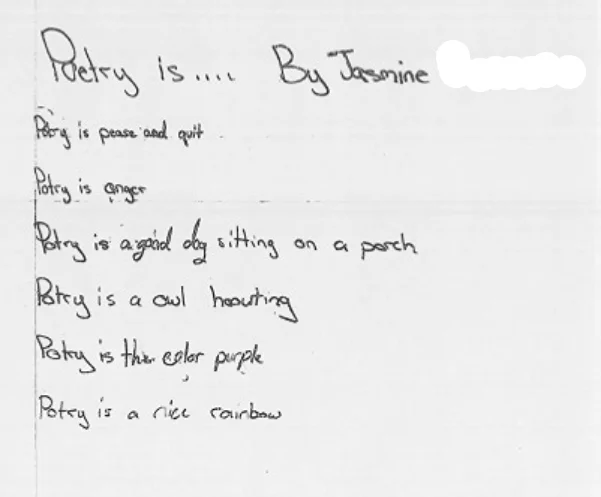 Poetry is.... By Jasmine
Potry is pease and quit
Potry is anger
Potry is a good dog sitting on a porch
Potry is a owl hoouting
Potry is the color purple
Potry is a nice rainbow